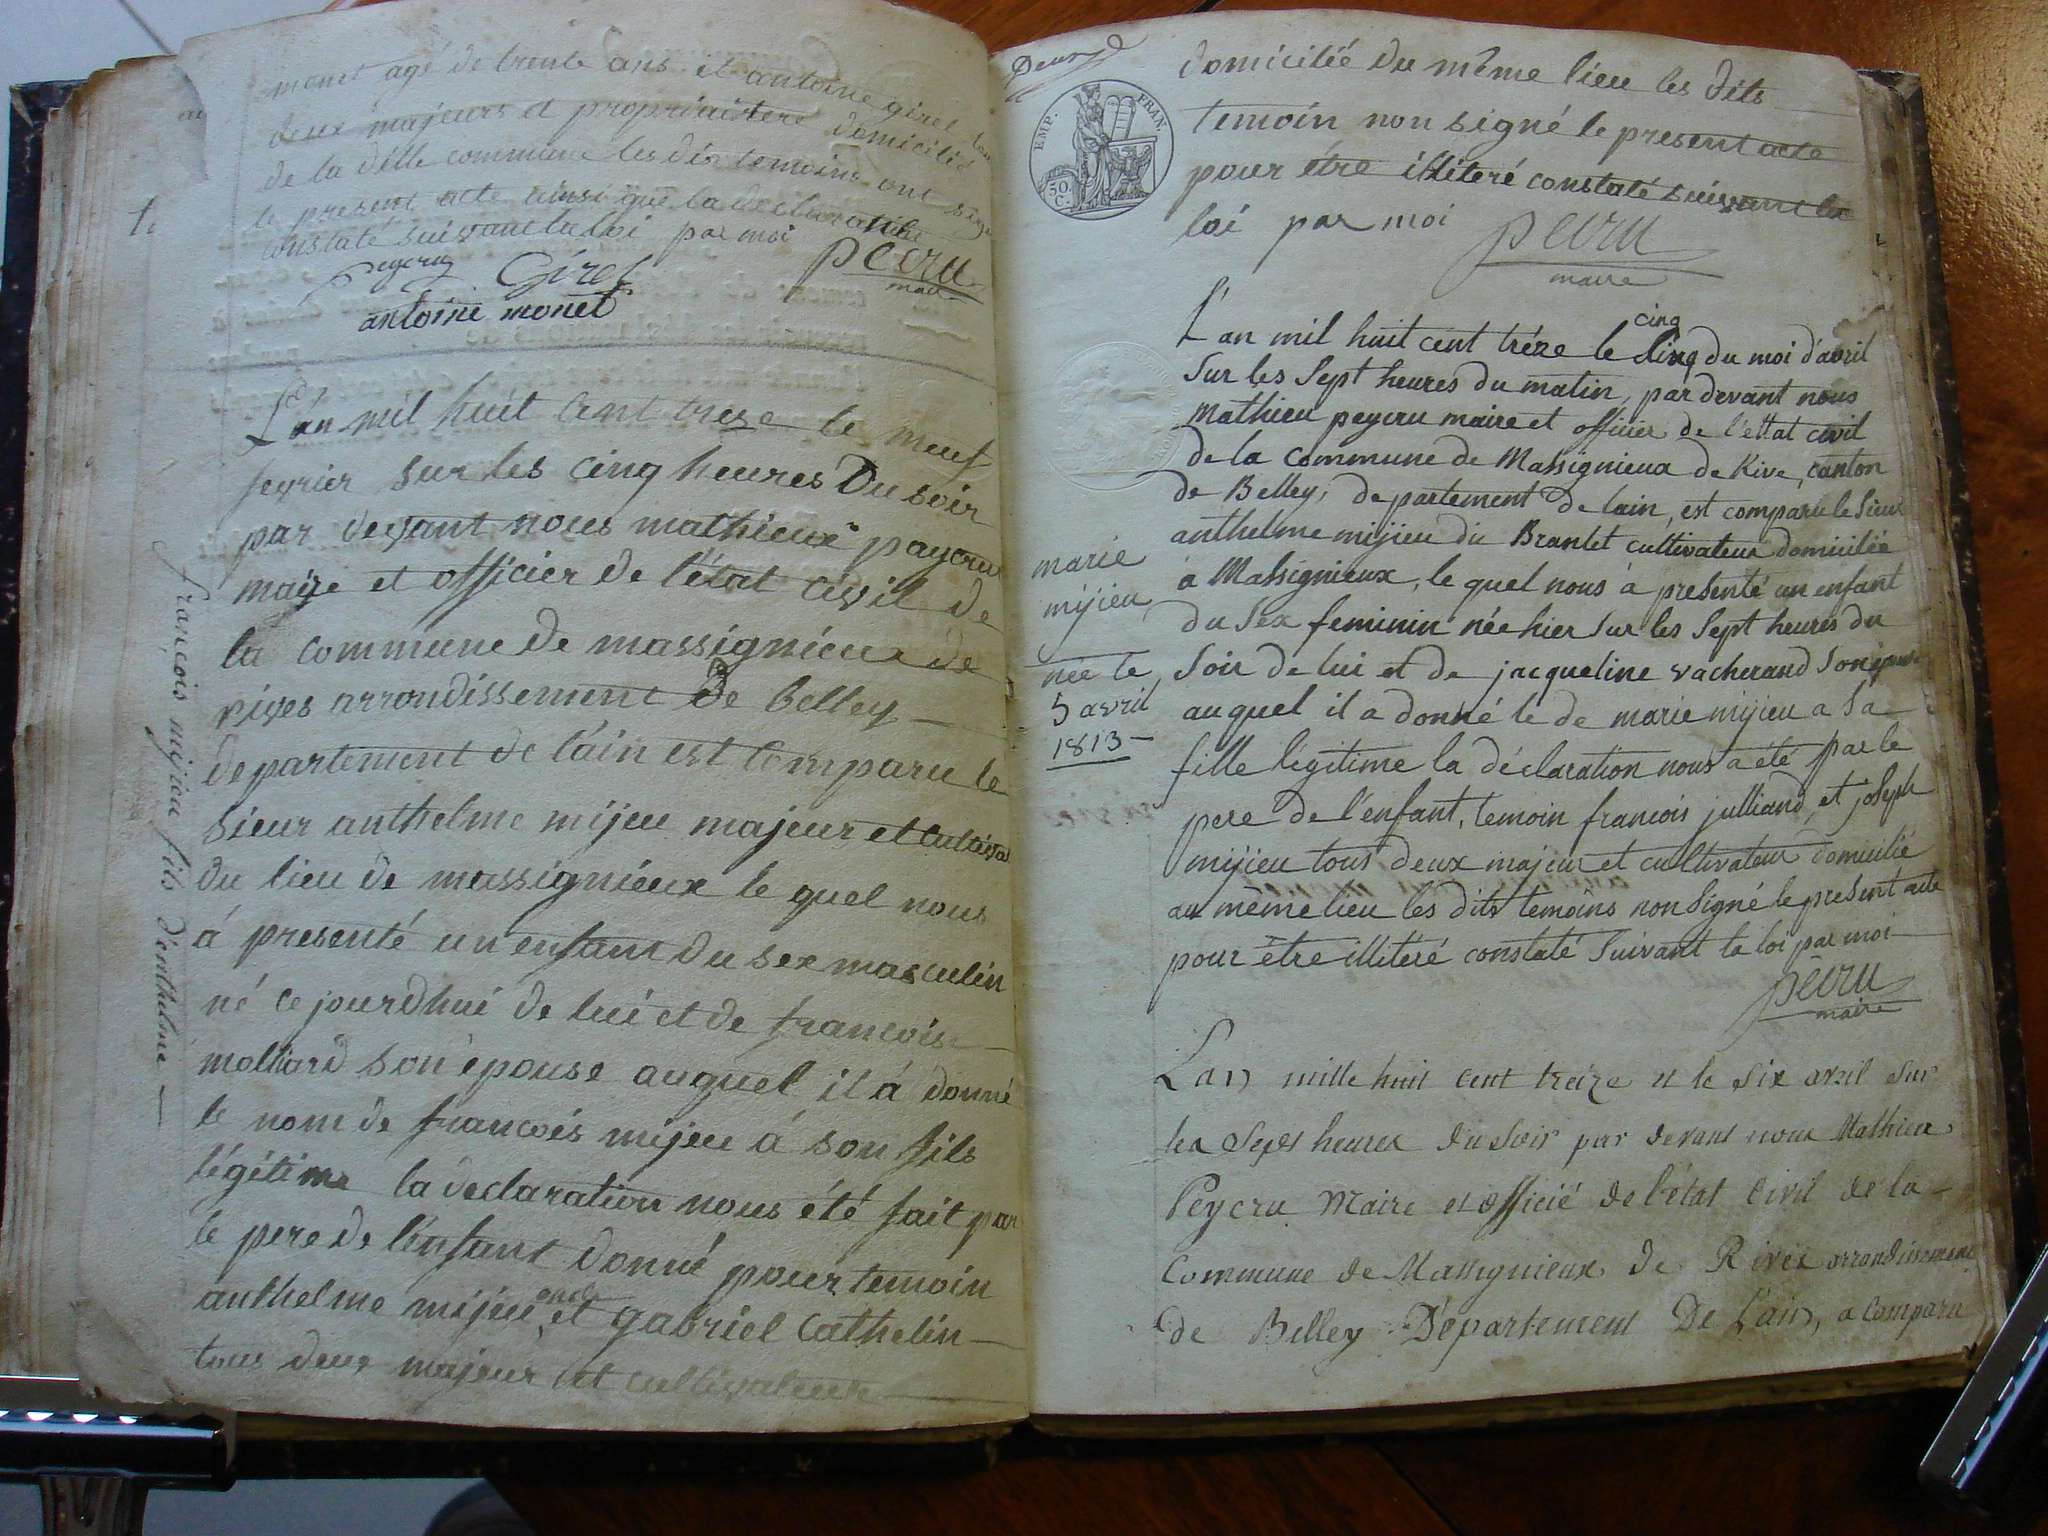 monet agé de trente ans et antoine girel tous
deux majeurs et propriaiters domiciliés
de la ditte commune les dis temoins ont signé
le present acte ainsi que la declaration
constaté suivant la loi par moi
peycru Girel pecru
maire
antoine monet
L'an mil huit cent treze le neuf
fevrier sur les cinq heures du soir
par devant nous mathieux paycru
maire et officier de l'état civil de
la commune de massignieux de
rives arrondissement de belley
departement de l'ain est comparu le
sieur anthelme mijeu majeur et cultiva
du lieu de massignieux le quel nous
á presenté un enfant du sex masculin
né ce jourdhui de lui et de francois
molliard son épouse auquel il á donné
le nom de francois mijeu á son fils
légitime la declaration nous été fait par
le pere de l'enfant donné pour temoin
anthelme mijeu oncle et gabriel Cathelin
tous deux majeur et cultivateur
francois mijieu fils d'enthelme
EMP. FRAN.
50. C.
domiciliée du même lieu les dits
temoin non signé le present acte
pour étre illiteré constaté suivant la
loi par moi pecru
maire
L'an mil huit cent tréze le cinq du moi d'avril
cinq
Sur les Sept heures du matin, par devant nous
Mathieu peycru maire et officier de l'ettat civil
de la Commune de Massignieux de Rive, canton
de Belley, departement de lain, est comparu le Sieur
anthelme mijieu du Brantet cultivateur domicilée
a Massignieux, le quel nous à presenté un enfant
du Sex feminin née hier sur les Sept heures du
Soir de lui et de jacqueline vacherand Son épouse
auquel il a donné le de marie mijieu a Sa
fille légitime la déclaration nous a été par le
pere de l'enfant, temoin francois julliand, et joseph
mijieu tous deux majeur et cultivateur domicilié
au même lieu les dits temoins non Signé le present acte
pour être illitéré constaté Suivant la loi par moi
pecru
maire
marie
mijieu
née le
5 avril
1813
Lan mille huit cent treize et le six avril sur
les Sept heures du Soir par devant nous Mathieu
Peycru Maire et officié de l'état Civil de la
Commune de Massignieux de Rives arrondissement
de Belley Département De l'ain, a comparu